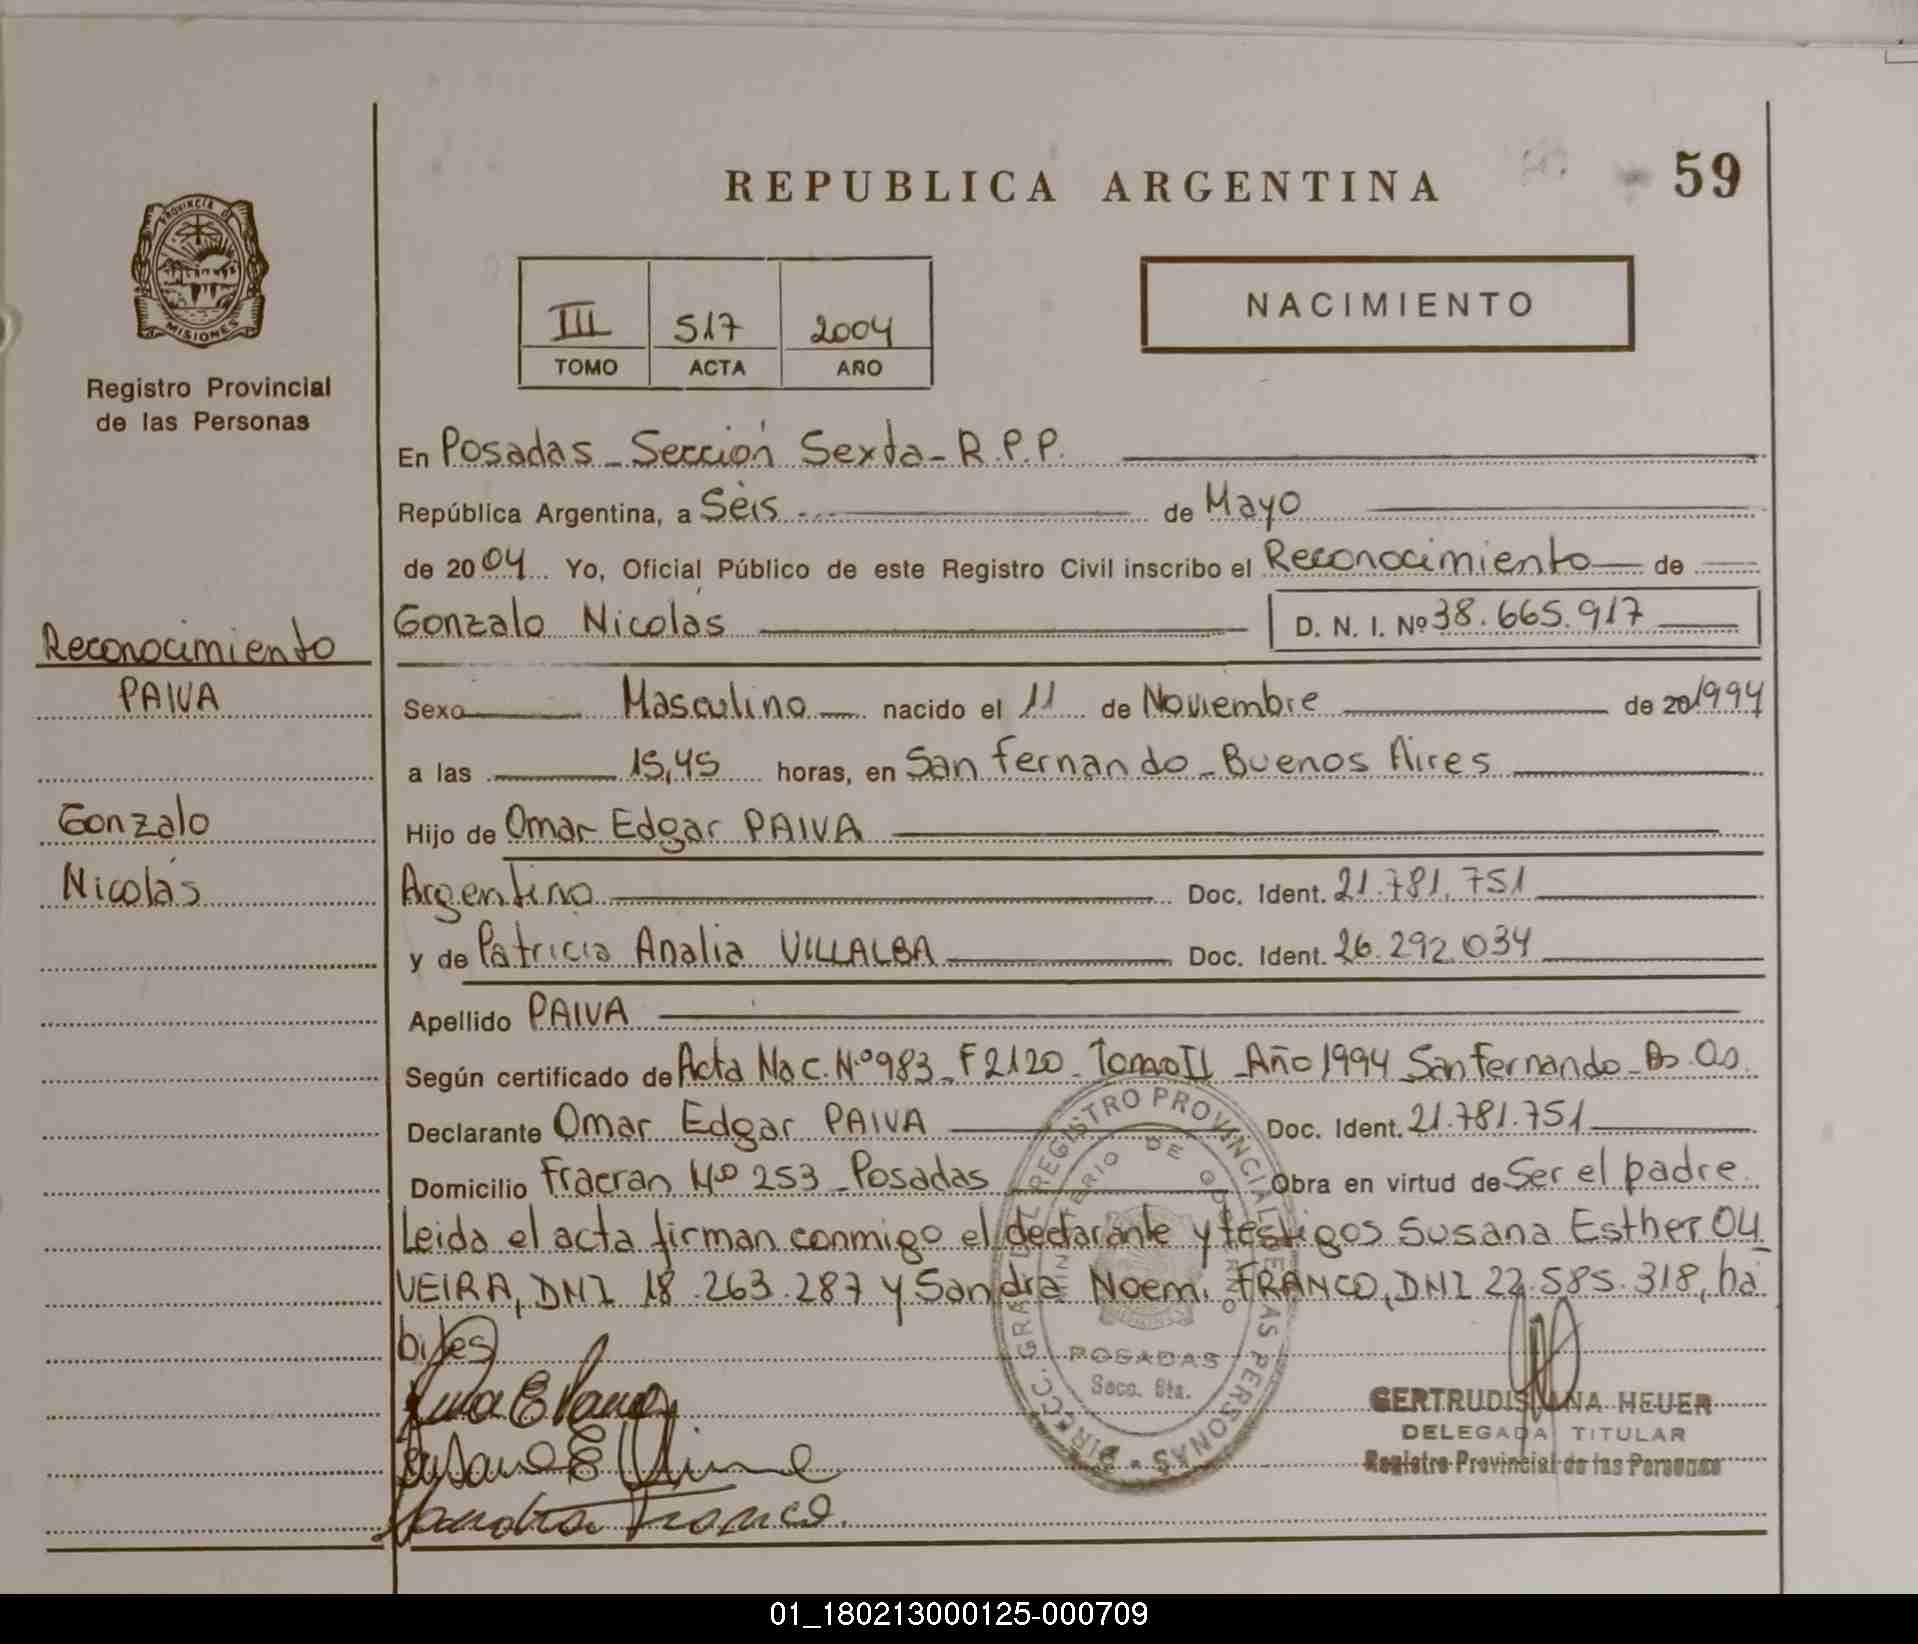 REPUBLICA ARGENTINA
59
PROVINCIA DE
MISIONES
Registro Provincial
de las Personas
III 517 2004
TOMO ACTA AÑO
NACIMIENTO
En Posadas - Sección Sexta - R.P.P.
República Argentina, a Séis de Mayo
de 2004 Yo, Oficial Público de este Registro Civil inscribo el Reconocimiento de
Gonzalo Nicolás D. N. I. Nº 38.665.917
Reconocimiento
PAIVA
Gonzalo
Nicolás
Sexo Masculino nacido el 11 de Noviembre de 20 1994
a las 15,45 horas, en San Fernando - Buenos Aires
Hijo de Omar Edgar PAIVA
Argentino Doc. Ident. 21.781.751
y de Patricia Analia VILLALBA Doc. Ident. 26.292.034
Apellido PAIVA
Según certificado de Acta Nac. Nº 983 - F 2120 - Tomo II - Año 1994 San Fernando - Bs. As.
Declarante Omar Edgar PAIVA Doc. Ident. 21.781.751
Domicilio Fracran Nº 253 - Posadas Obra en virtud de Ser el padre
Leida el acta firman conmigo el declarante y testigos Susana Esther OLI
VEIRA, DNI 18.263.287 y Sandra Noemi FRANCO, DNI 22.585.318, há
biles
DIRECC. GRAL. DEL REGISTRO PROVINCIAL DE LAS PERSONAS
MINISTERIO DE GOBIERNO
POSADAS
Secc. 6ta.
Sandra Franco.
GERTRUDIS ANA HEUER
DELEGADA TITULAR
Registro Provincial de las Personas
01_180213000125-000709